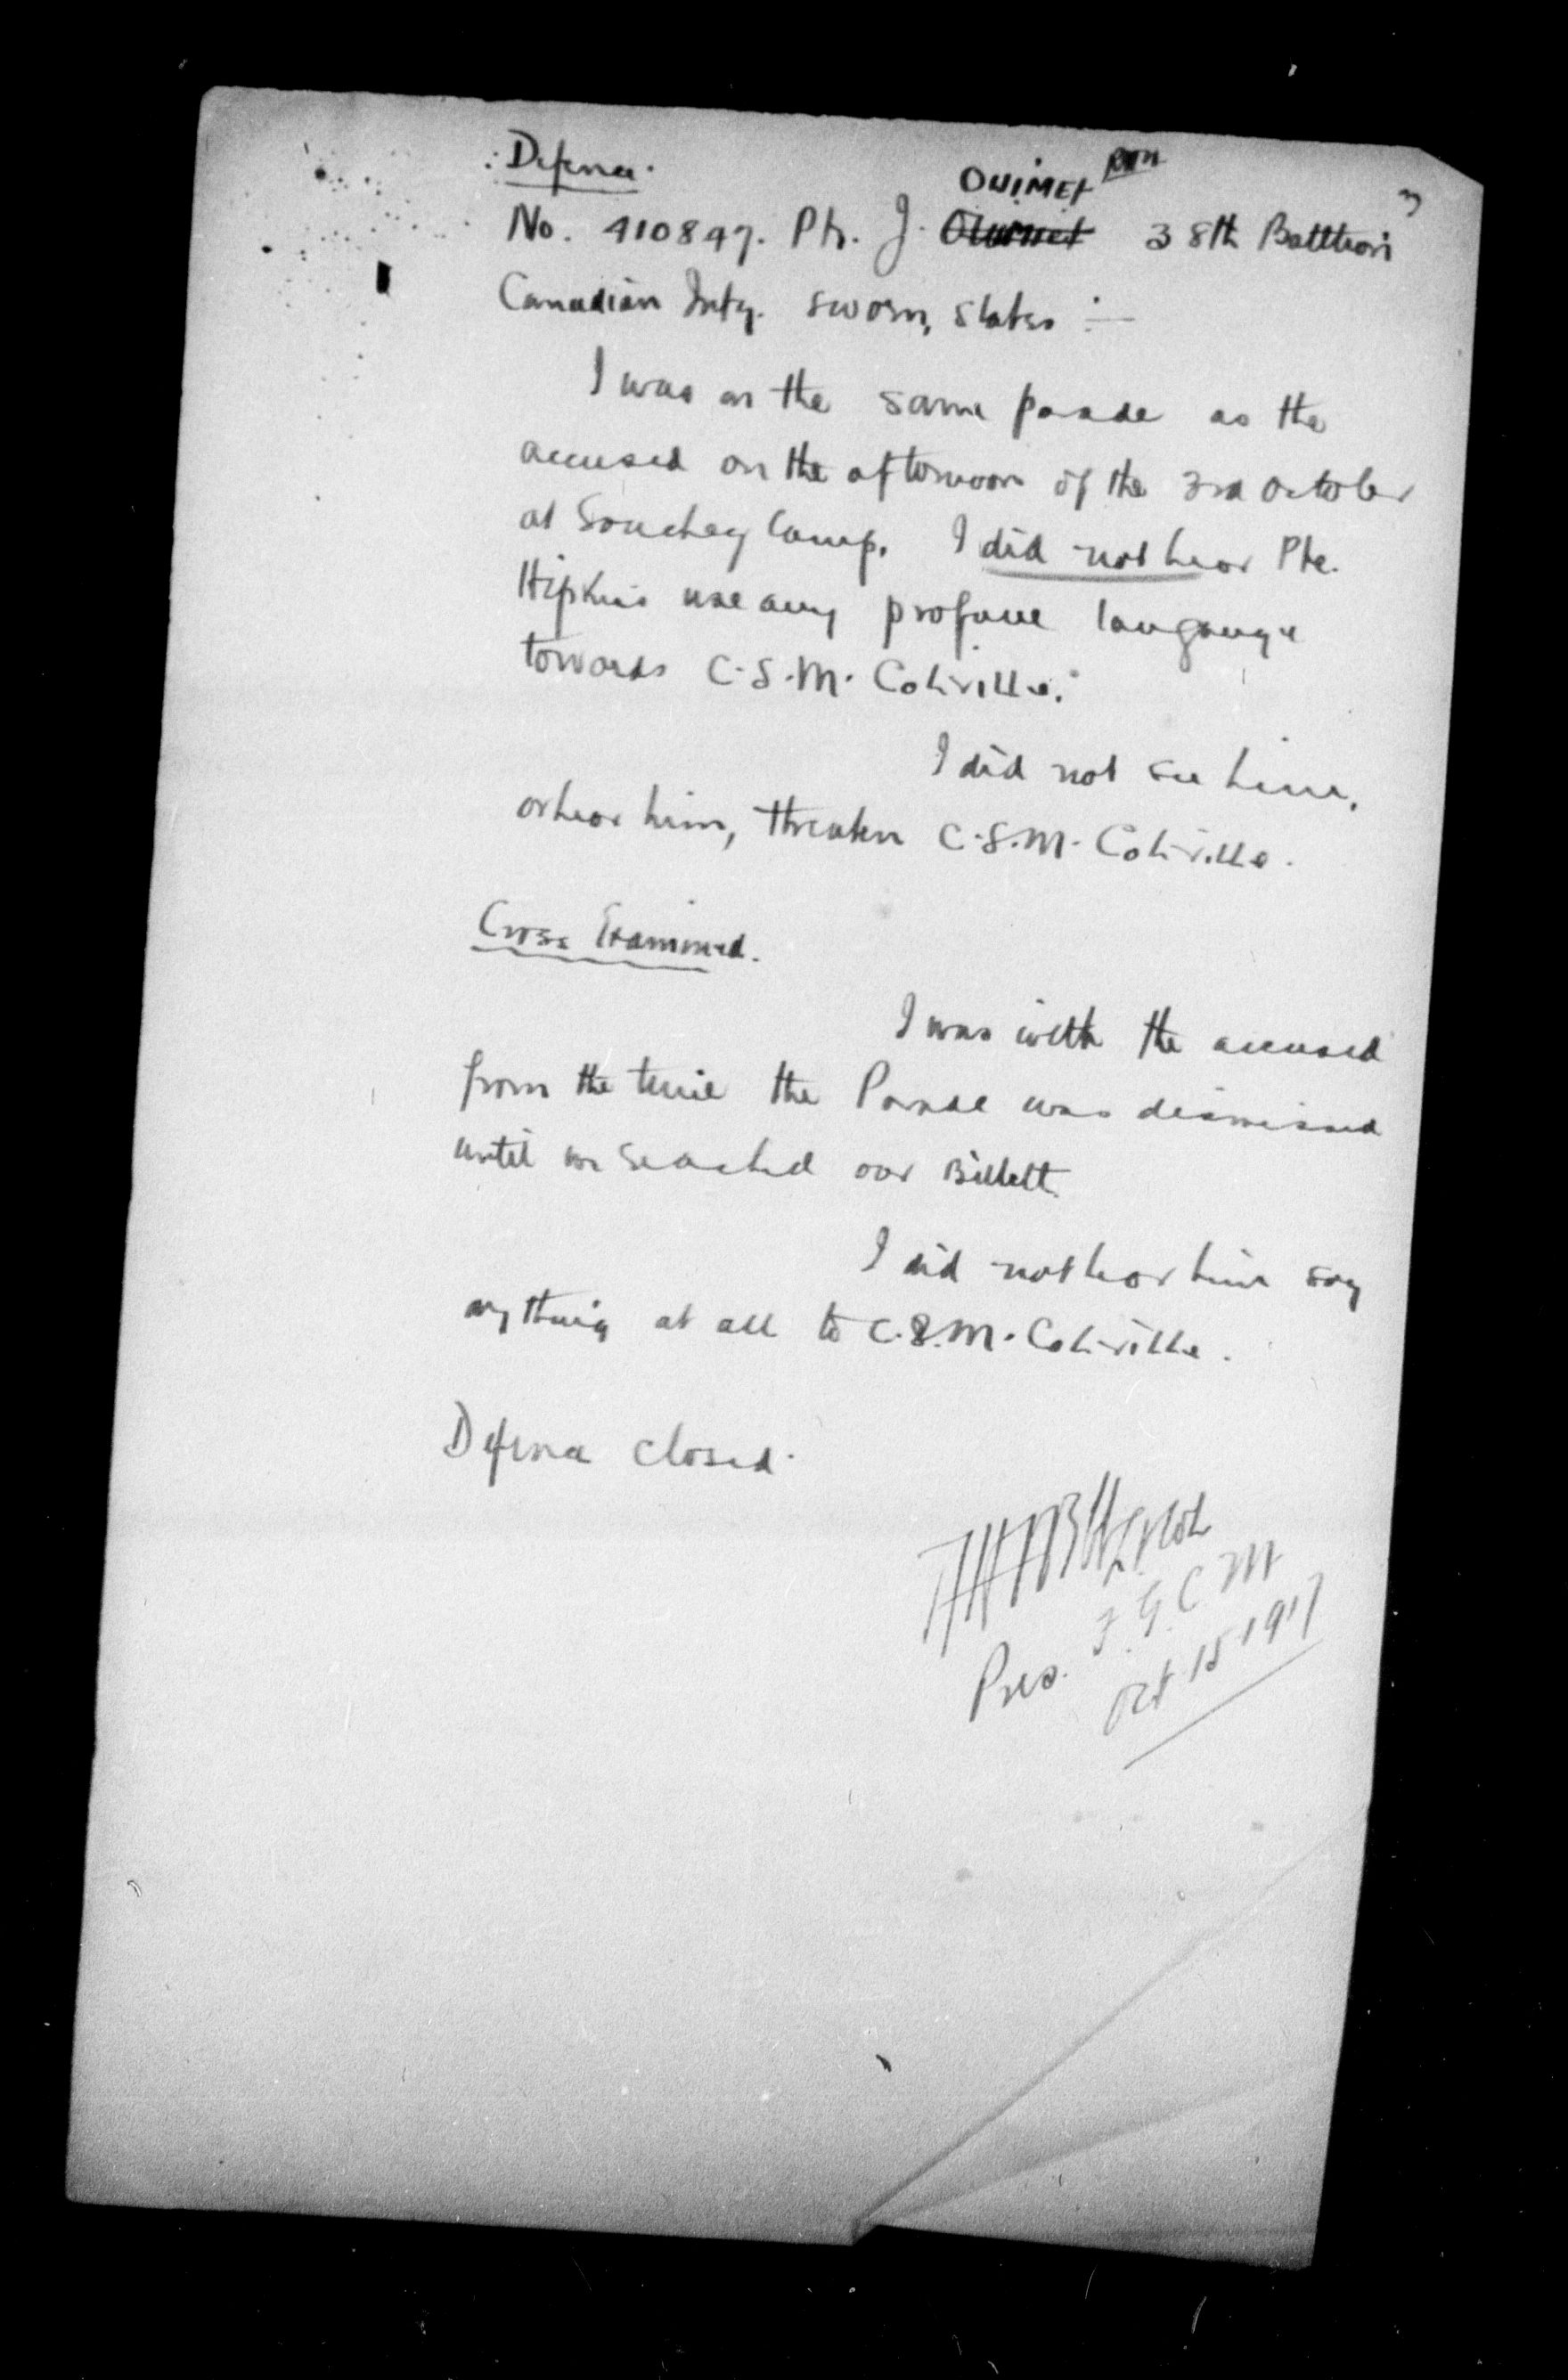 Defence.
OUIMET
3
No. 410847. Pte. J. Ouimet 38th Battlion
Canadian Infty. sworn, states :—
I was on the same parade as the
accused on the afternoon of the 3rd October
at Souchey Camp. I did not hear Pte.
Hipkins use any profane language
towards C.S.M. Colville.
I did not see him,
or hear him, threaten C.S.M. Colville.
Cross Examined.
I was with the accused
from the time the Parade was dismissed
until we reached our Billett.
I did not hear him say
anything at all to C.S.M. Colville.
Defence closed.
Pres. F.G.C.M
Oct 15 1917